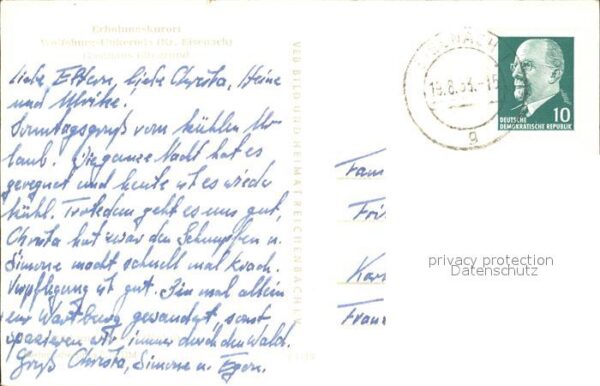 Erholungskurort
Wolfsburg-Unkeroda (Kr. Eisenach)
Liebe Eltern, liebe Christa, Heine
und Ulrike!
Sonntagsgruß vom kühlen Ur-
laub. Die ganze Nacht hat es
geregnet und heute ist es wieder
kühl. Trotzdem geht es uns gut,
Christa hat zwar den Schnupfen u.
Simone macht schnell mal krach.
Verpflegung ist gut. Ein mal allein
zur Wartburg gewandert, sonst
spazieren wir immer durch den Wald.
Gruß Christa, Simone u. Egon.
VEB BILD UND HEIMAT REICHENBACH I. V.
EISENACH
19.8.63.-15
g
10
DEUTSCHE
DEMOKRATISCHE REPUBLIK
Fam
Fri
Kar
Fran
privacy protection
Datenschutz